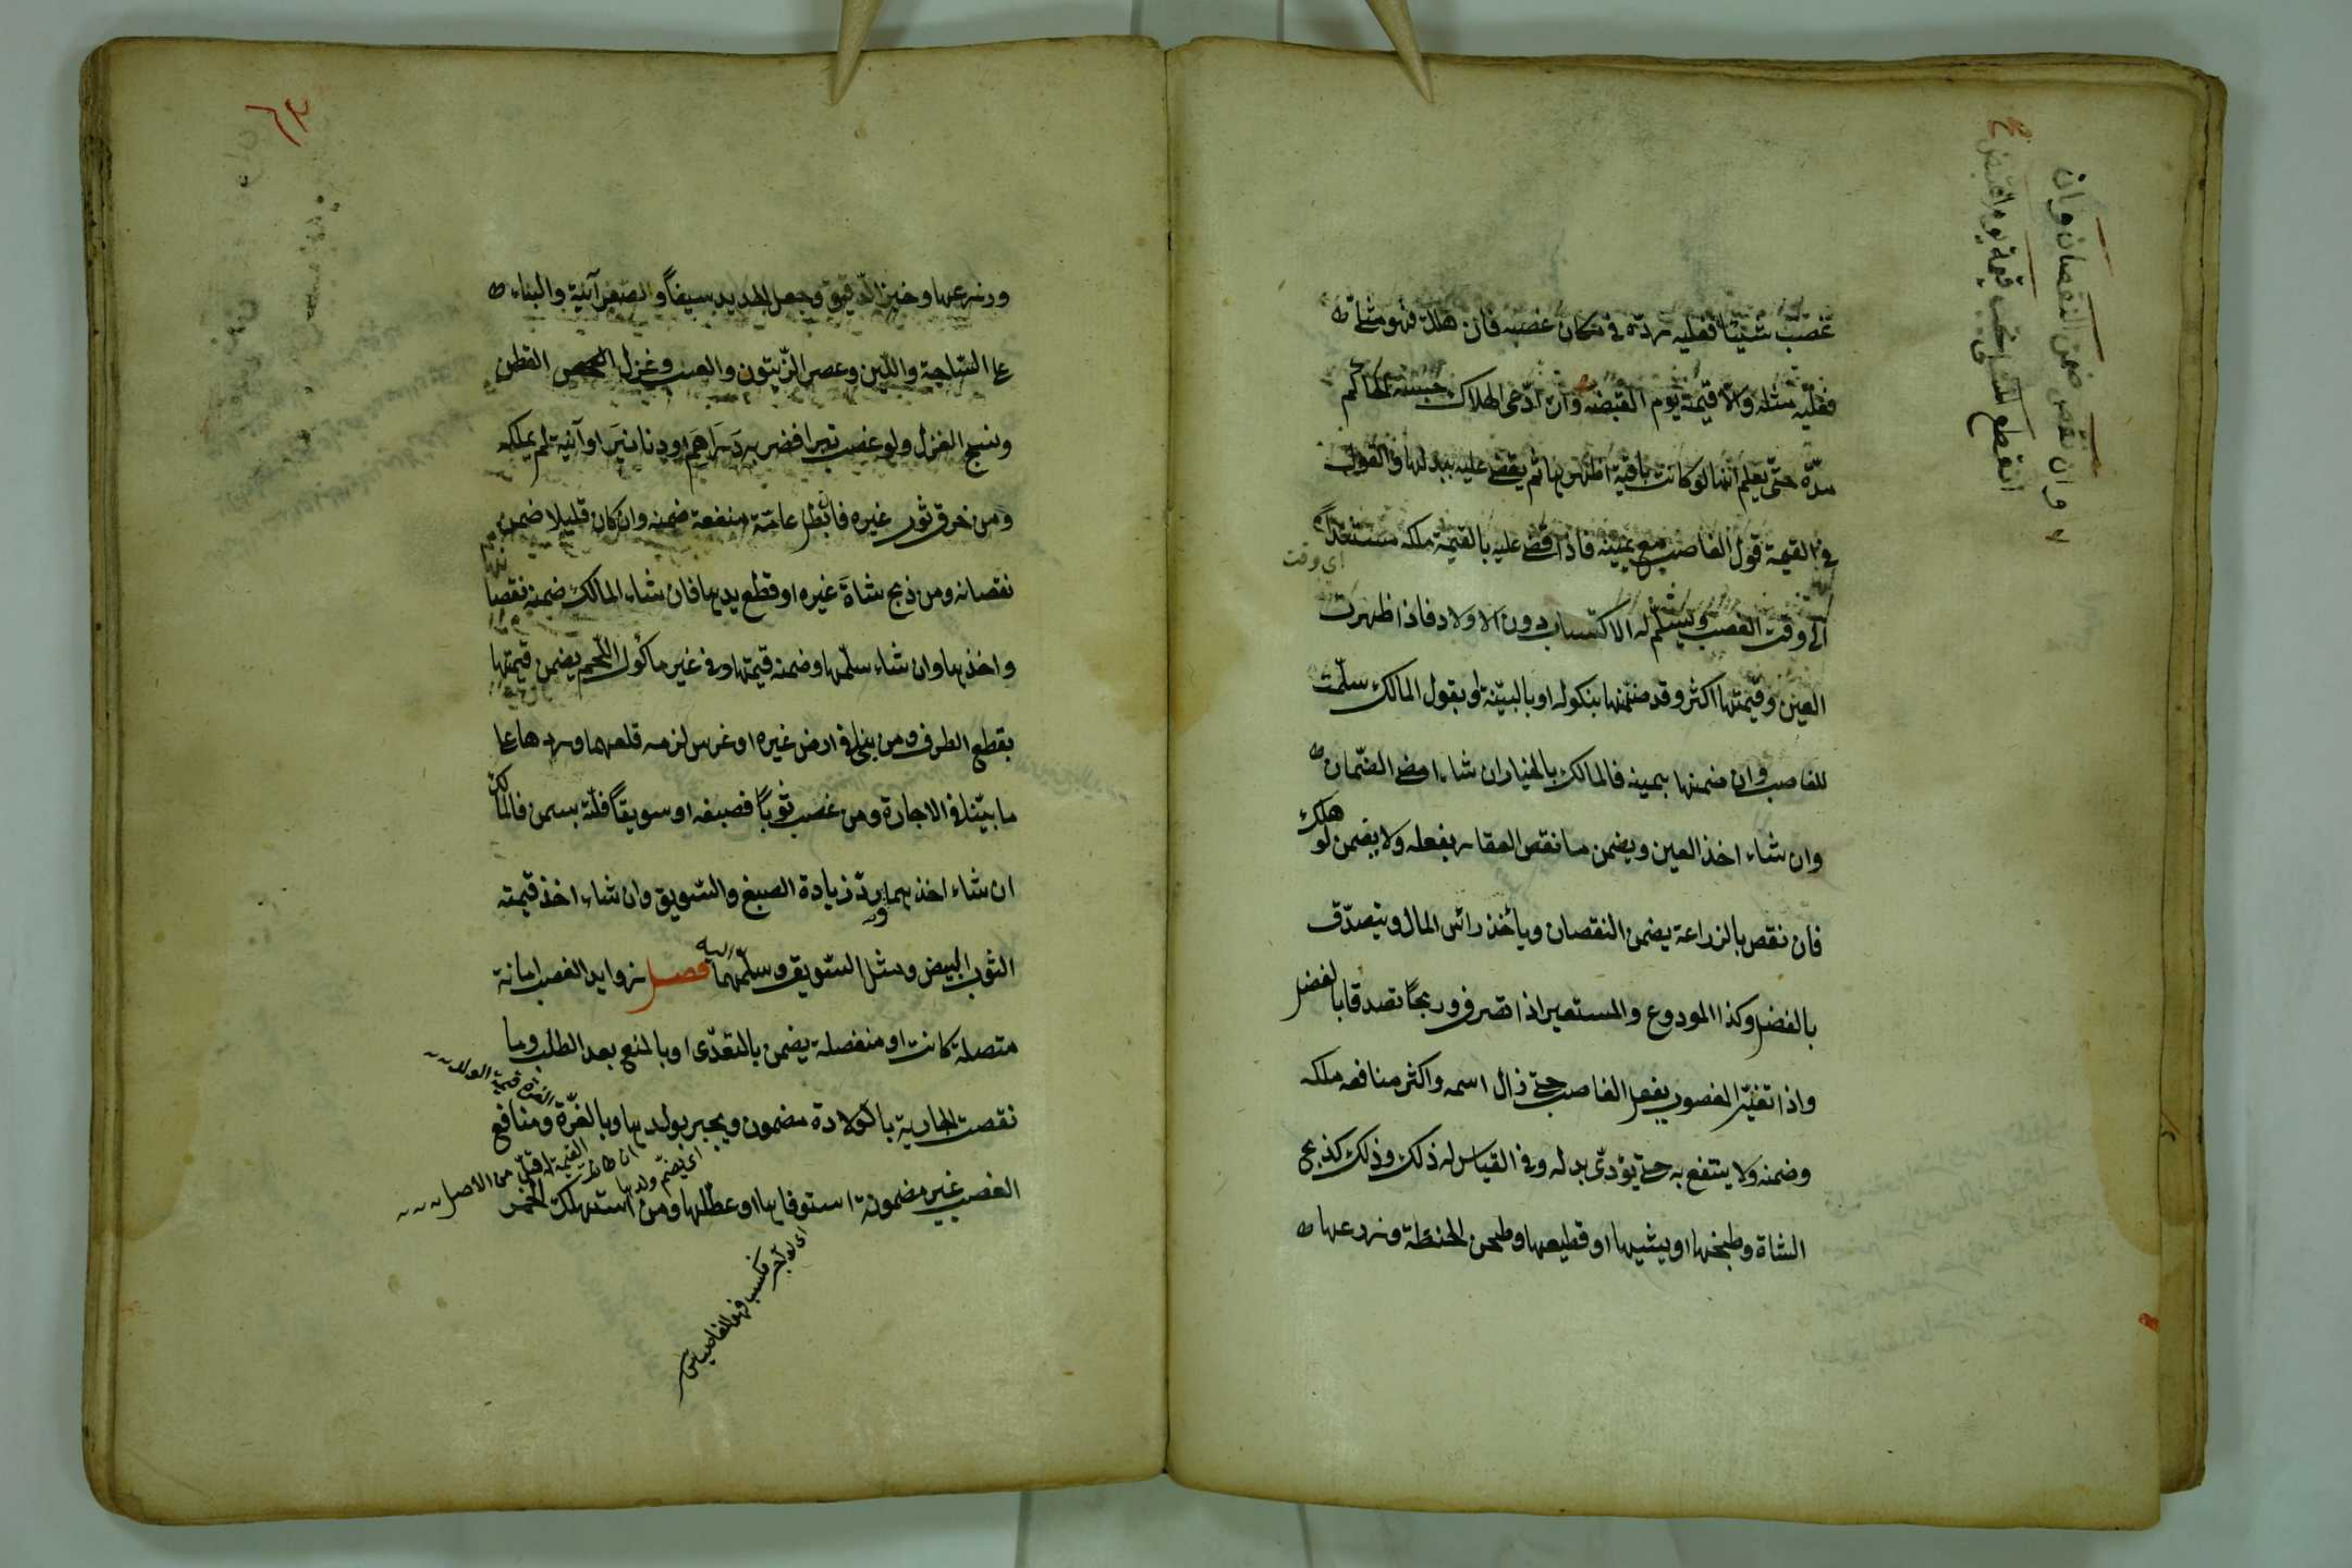 غصب شيئا فعليه ردّه في مكان غصبه فان هلك فهو مثلي
فعليه مثله والا قيمته يوم القبض وان ادّعى الهلاك حبسه الحاكم
مدّة حتى يعلم انها لو كانت باقية اظهرها ثم يقضي عليه ببدلها والقول
في القيمة قول الغاصب مع يمينه فاذا قضي عليه بالقيمة ملكه مستندًا
اي وقت
الى وقت الغصب ويسلم له الاكتساب دون الاولاد فاذا ظهرت
العين وقيمتها اكثر وقد ضمنها بنكوله او بالبيّنة او بقول المالك سلّمت
للغاصب وان ضمنها بيمينه فالمالك بالخيار ان شاء امضى الضمان
وان شاء اخذ العين ويضمن ما نقص العقار بفعله ولا يضمن لو هلك
فان نقص بالزراعة يضمن النقصان وياخذ رأس المال ويتصدّق
بالفضل وكذا المودوع والمستعير اذا تصرف وربحا تصدقا بالفضل
واذا تغيّر المغصوب بفعل الغاصب حتى زال اسمه واكثر منافعه ملكه
وضمنه ولا ينتفع به حتى يؤدّى بدله وفي القياس له ذلك وذلك كذبح
الشاة وطبخها او يشيها او قطيعها وطحن الحنطة وزرعها
وان نقص ضمن النقصان وان
انقطع المثلي تجب قيمة يوم القبض
٦٣
وزرعها وخبز الدقيق وجعل الحديد سيفًا والصفر آنية والبناء
على الساجة واللبن وعصر الزيتون والعنب وغزل القطن
ونسج الغزل ولو غصب تبرا فضربه دراهم او دنانير او آنية لم يملكه
ومن خرق ثوب غيره فابطل عامّة منفعة ضمنه وان كان قليلا ضمن
نقصانه ومن ذبح شاة غيره او قطع يديها فان شاء المالك ضمنه نقصانها
واخذها وان شاء سلّمها وضمنه قيمتها وفي غير مأكول اللحم يضمن قيمتها
بقطع الطرف ومن بنى في ارض غيره او غرس لزمه قلعهما وردها على
ما بيّنا في الاجارة ومن غصب ثوبًا فصبغه او سويقًا فلتّه بسمن فالمالك
ان شاء اخذهما وردّ زيادة الصبغ والسويق وان شاء اخذ قيمته
الثوب ابيض ومثل السويق وسلّمهما اليه فصل زوايد الغصب امانة
متصلة كانت او منفصلة يضمن بالتعدّى او بالمنع بعد الطلب وما
الغرة قيمة الولد
نقصت الجارية بالولادة مضمون ويجبر بولدها وبالغرّة ومنافع
اي يضمّ ولدها ان كانت القيمة اقلّ من الاصل
الغصب غير مضمونة استوفاها او عطّلها ومن استهلك الخمر